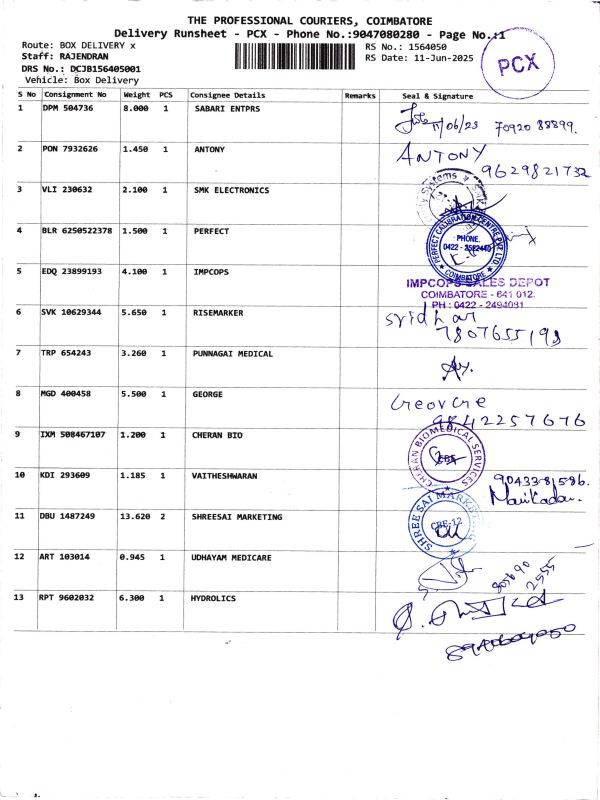 THE PROFESSIONAL COURIERS, COIMBATORE
Delivery Runsheet - PCX - Phone No.:9047080280 - Page No.:1
Route: BOX DELIVERY x
RS No.: 1564050
Staff: RAJENDRAN
RS Date: 11-Jun-2025
DRS No.: DCJB156405001
Vehicle: Box Delivery
PCX
S No Consignment No Weight PCS Consignee Details Remarks Seal & Signature
1 DPM 504736 8.000 1 SABARI ENTPRS
11/06/25 70920 88899.
2 PON 7932626 1.450 1 ANTONY ANTONY
9629821732
3 VLI 230632 2.100 1 SMK ELECTRONICS
Systems
4 BLR 6250522378 1.500 1 PERFECT
PERFECT CALIBRATION CENTRE PVT LTD
PHONE.
COIMBATORE
5 EDQ 23899193 4.100 1 IMPCOPS
IMPCOPS SALES DEPOT
COIMBATORE - 641 012.
PH : 0422 - 2494031
6 SVK 10629344 5.650 1 RISEMARKER sridhar
7807655198
7 TRP 654243 3.260 1 PUNNAGAI MEDICAL
8 MGD 400458 5.500 1 GEORGE
9842257676
9 IXM 508467107 1.200 1 CHERAN BIO
CHERAN BIOMEDICAL SERVICES
CBE
10 KDI 293609 1.185 1 VAITHESHWARAN
9043381586.
Manikadan.
11 DBU 1487249 13.620 2 SHREESAI MARKETING
SHREE SAI MARKETING
CBE-12
12 ART 103014 0.945 1 UDHAYAM MEDICARE
13 RPT 9602032 6.300 1 HYDROLICS